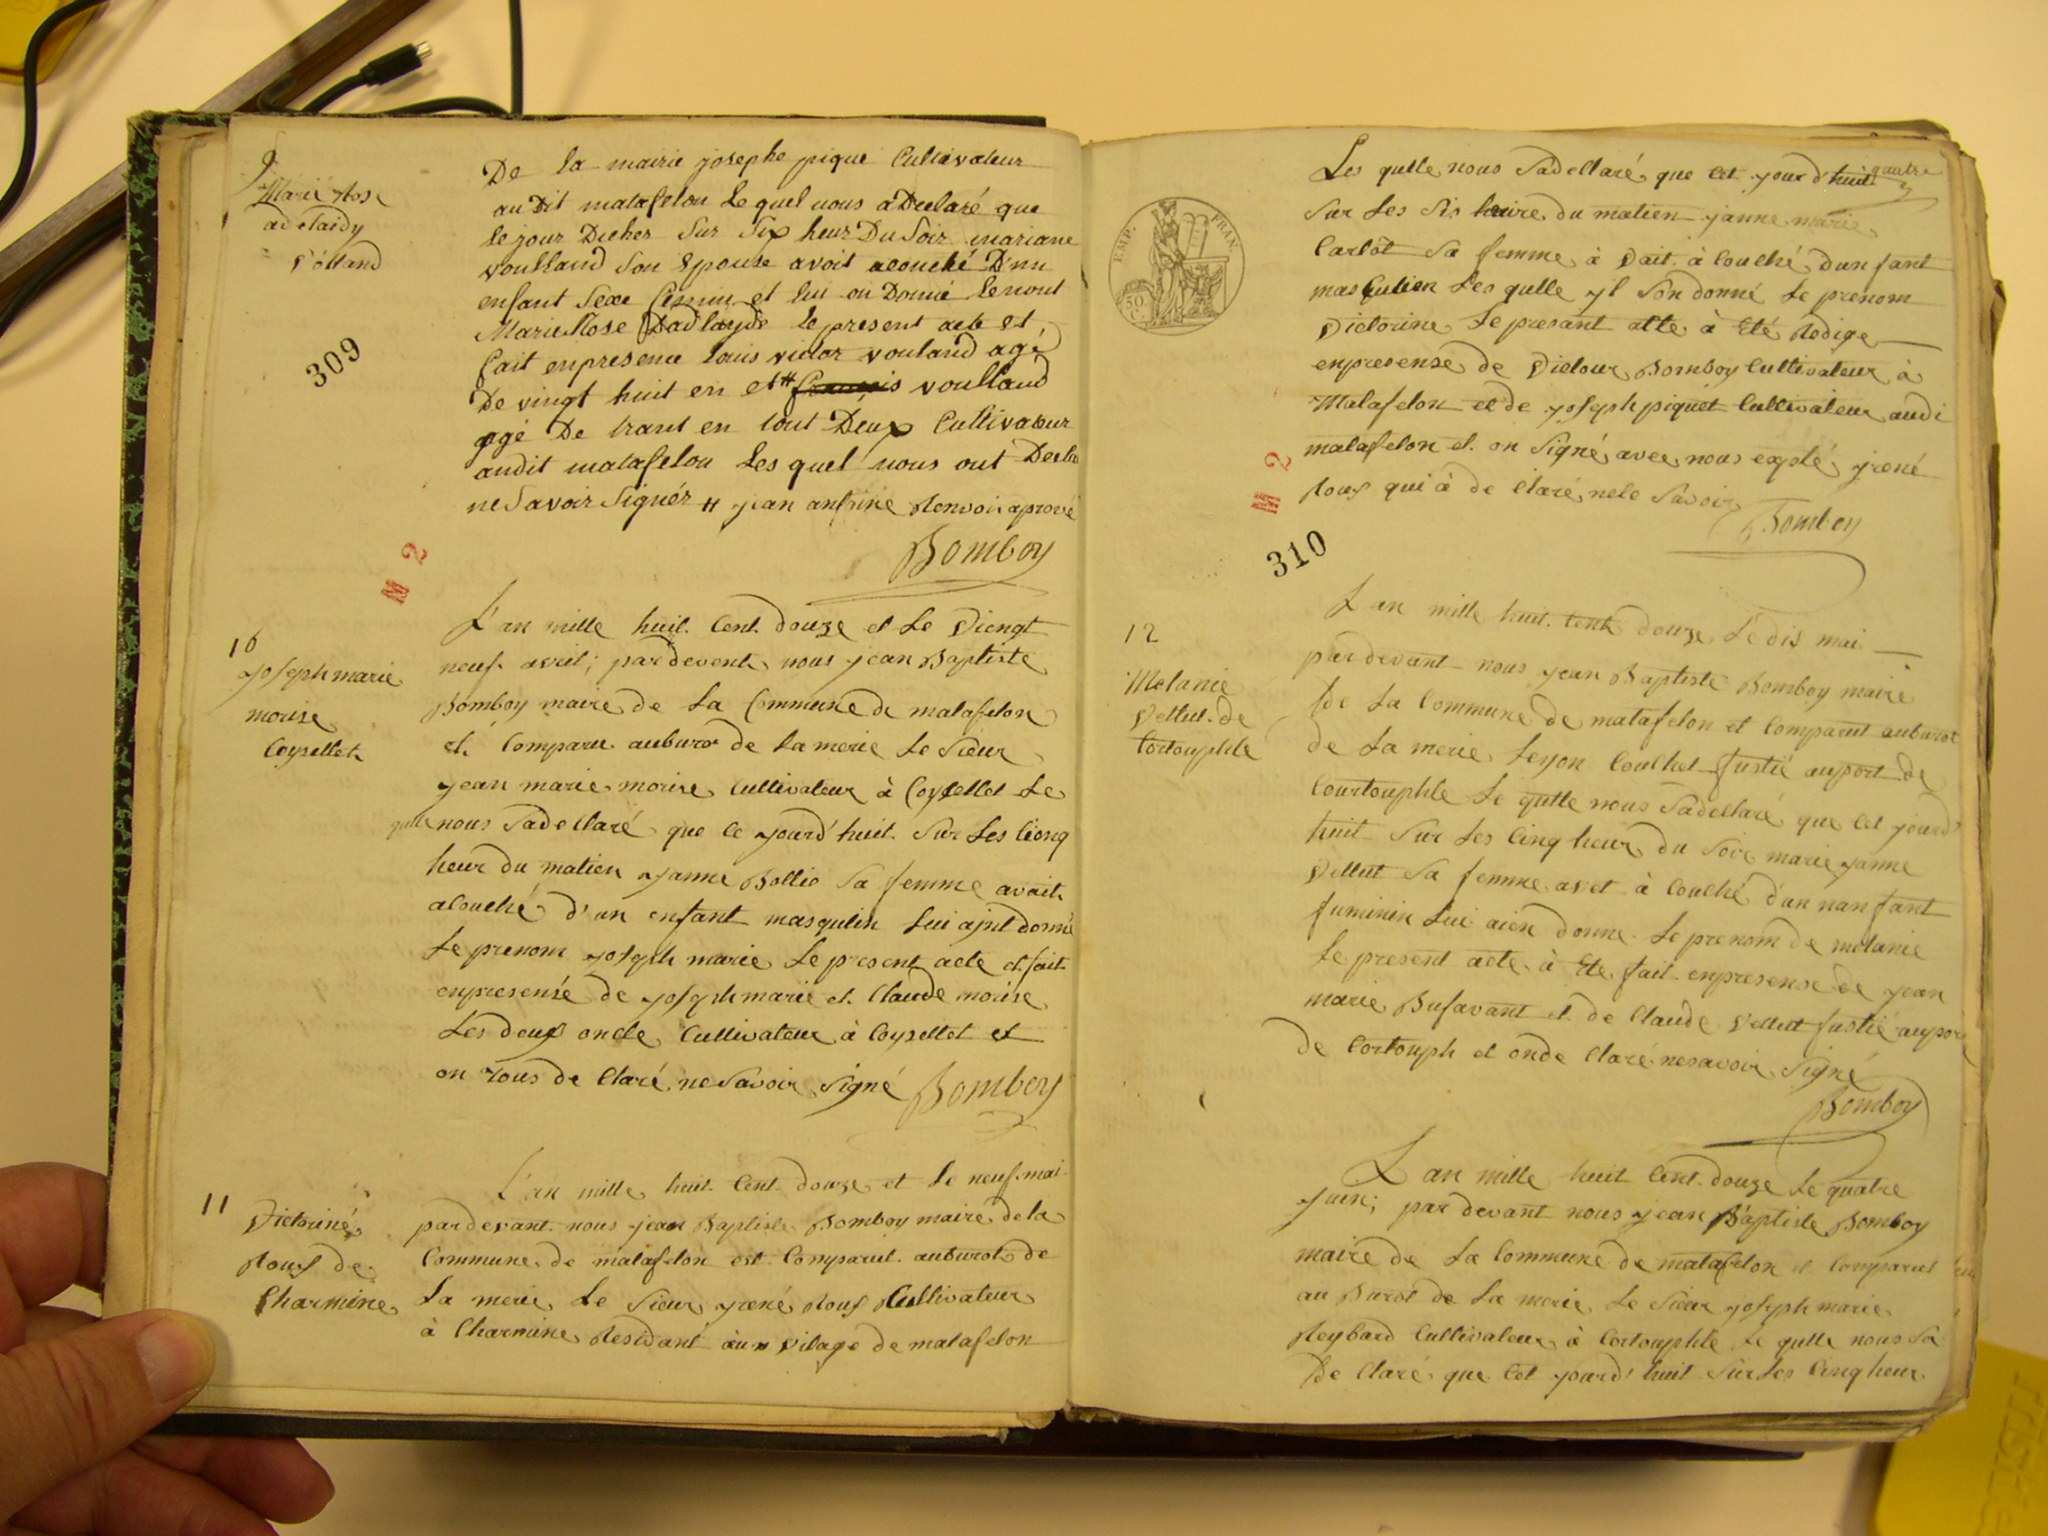 9
Marie Rose
adelaidy
Volland
De la mairie josephe pique Cultivateur
au Dit matafelon Le quel nous a Declaré que
le jour Dieher Sur Six heur Du Soir mariane
voulland Son Epouse avoit acouché D'un
enfant Sexe feminin et lui on Donné Lenont
Marie Rose Dadlayde le present acte et
fait enpresence louis victor vouland agé
De vingt huit en et # français voulland
agé De trant en tout Deux Cultivateur
audit matafelon Les quel nous out Declar
ne Savoir Signér # jean antoine Renvoi aprové
Bomboy
309
M 2
10
joseph marie
morise
Coysellet
L'an mille huit Cent douze et Le Viengt
neuf avril; pardevent nous jean Baptiste
Bomboy maire de La Commune de matafelon
et Comparu auburo de La merie Le Sieur
jean marie morise Cultivateur à Coysellet Le
quelle nous Sadellaré que ce jourd'huit Sur Les Cionq
heur du matien janne Bollio Sa femme avait
acouché d'un enfant masqulin Lui ajnt donné
Le prenom joseph marie Le present acte et fait
enpresensé de joseph marie et Claude morise
Les deux oncle Cultivateur à Coysellet et
on tous de Claré ne Savoir Signé Bomboy
11
Victoriné
Rouf de
Charmine
L'an mille huit Cent douze et Le neuf mai
pardevant nous jean Baptiste Bomboy maire dela
Commune de matafelon est Comparuit auburot de
La merie Le Sieur jrené Rouf Cultivateur
à Charmine Residant àun vilage de matafelon
EMP. FRAN.
50 C.
Les qulle nous Sadellaré que Cet jourd'huit quatre
Sur Les Sis heure du matien janne marie
Carlot Sa femme à vait à Couché dunfant
masculien Les qulle yl Son donné Le prenom
Victorine Le presant atte à Eté Redige
enpresense de Victour Bomboy Cultivateur à
Matafelon et de joseph piquet Cultivateur audi
matafelon et on Signé avec nous expté jrené
Rouf qui à de Claré nele Savoir
Bomboy
M 2
310
12
Melanie
Vellut de
Cortouphle
L an mille huit Cent douze Le dis mai
par devant nous jean Baptiste Bomboy maire
de La Commune de matafelon et Comparut auburot
de La merie Leyon Coulhet fustié auport de
Courtouphle Le qulle nous Sadellaré que Cet jourd'
huit Sur Les Cinq heur du Soir marie janne
Vellut Sa femme avet à Couché d'un nanfant
fuminin Lui aien donne Le prenom de melanie
Le present acte à Ete fait enpresense de jean
marie Bufavant et de Claude Vellut fustié auport
de Cortouph et onde Claré nesavoir Signé
Bomboy
L an mille huit Cent douze Le quatre
juin; par devant nous jean Baptiste Bomboy
maire de La Commune de matafelon et Comparuet
au Burot de La merie Le Sieur joseph marie
Reybard Cultivateur à Cortouphle Le qulle nous Sa
de Claré que Cet jourd'huit Sur Les Cinq heur